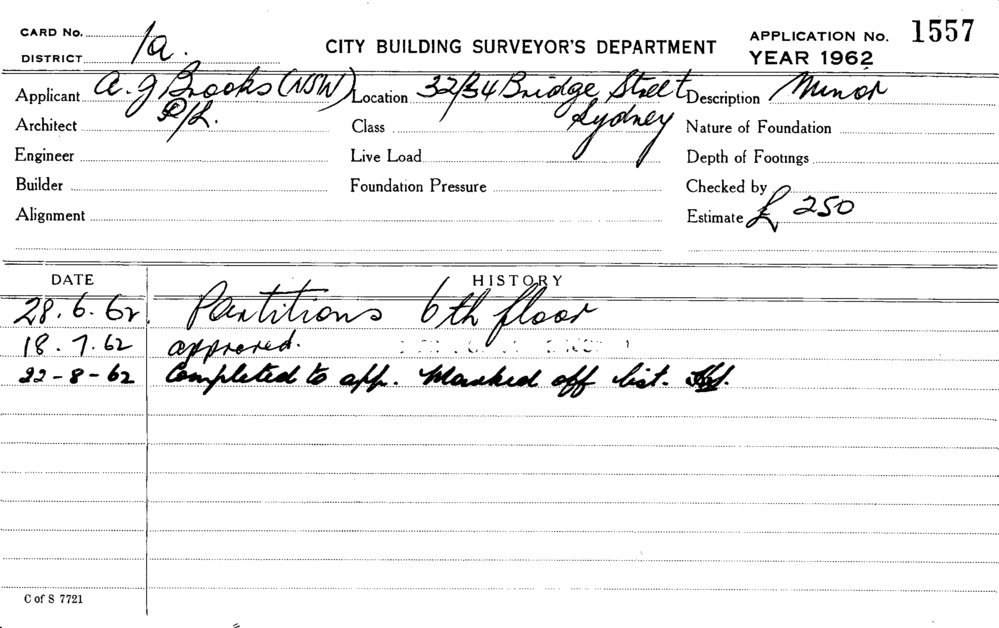 CARD No.
DISTRICT 1a.
CITY BUILDING SURVEYOR'S DEPARTMENT
APPLICATION No. 1557
YEAR 1962
Applicant A. G Brooks (NSW) P/L. Location 32/34 Bridge Street Sydney Description Minor
Architect Class Nature of Foundation
Engineer Live Load Depth of Footings
Builder Foundation Pressure Checked by
Alignment Estimate £ 250
DATE HISTORY
28.6.62 Partitions 6th floor
18.7.62 approved.
22-8-62 Completed to app. Marked off list.
C of S 7721